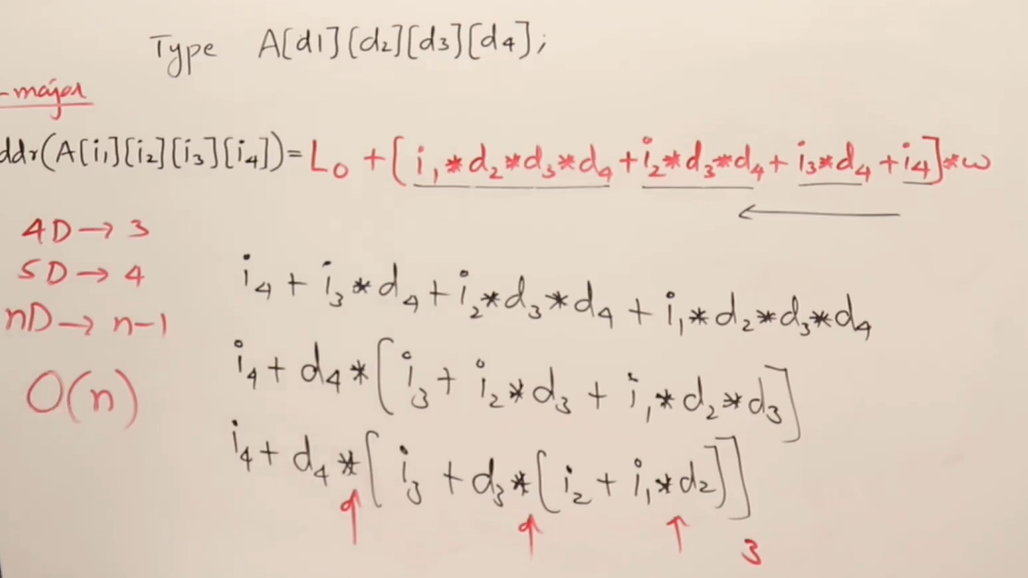 Type A[d1][d2][d3][d4];
-major
ddr(A[i1][i2][i3][i4]) = L0 + [i1*d2*d3*d4 + i2*d3*d4 + i3*d4 + i4]*w
4D → 3
5D → 4
nD → n-1
O(n)
i4 + i3*d4 + i2*d3*d4 + i1*d2*d3*d4
i4 + d4*[i3 + i2*d3 + i1*d2*d3]
i4 + d4*[i3 + d3*[i2 + i1*d2]]
3